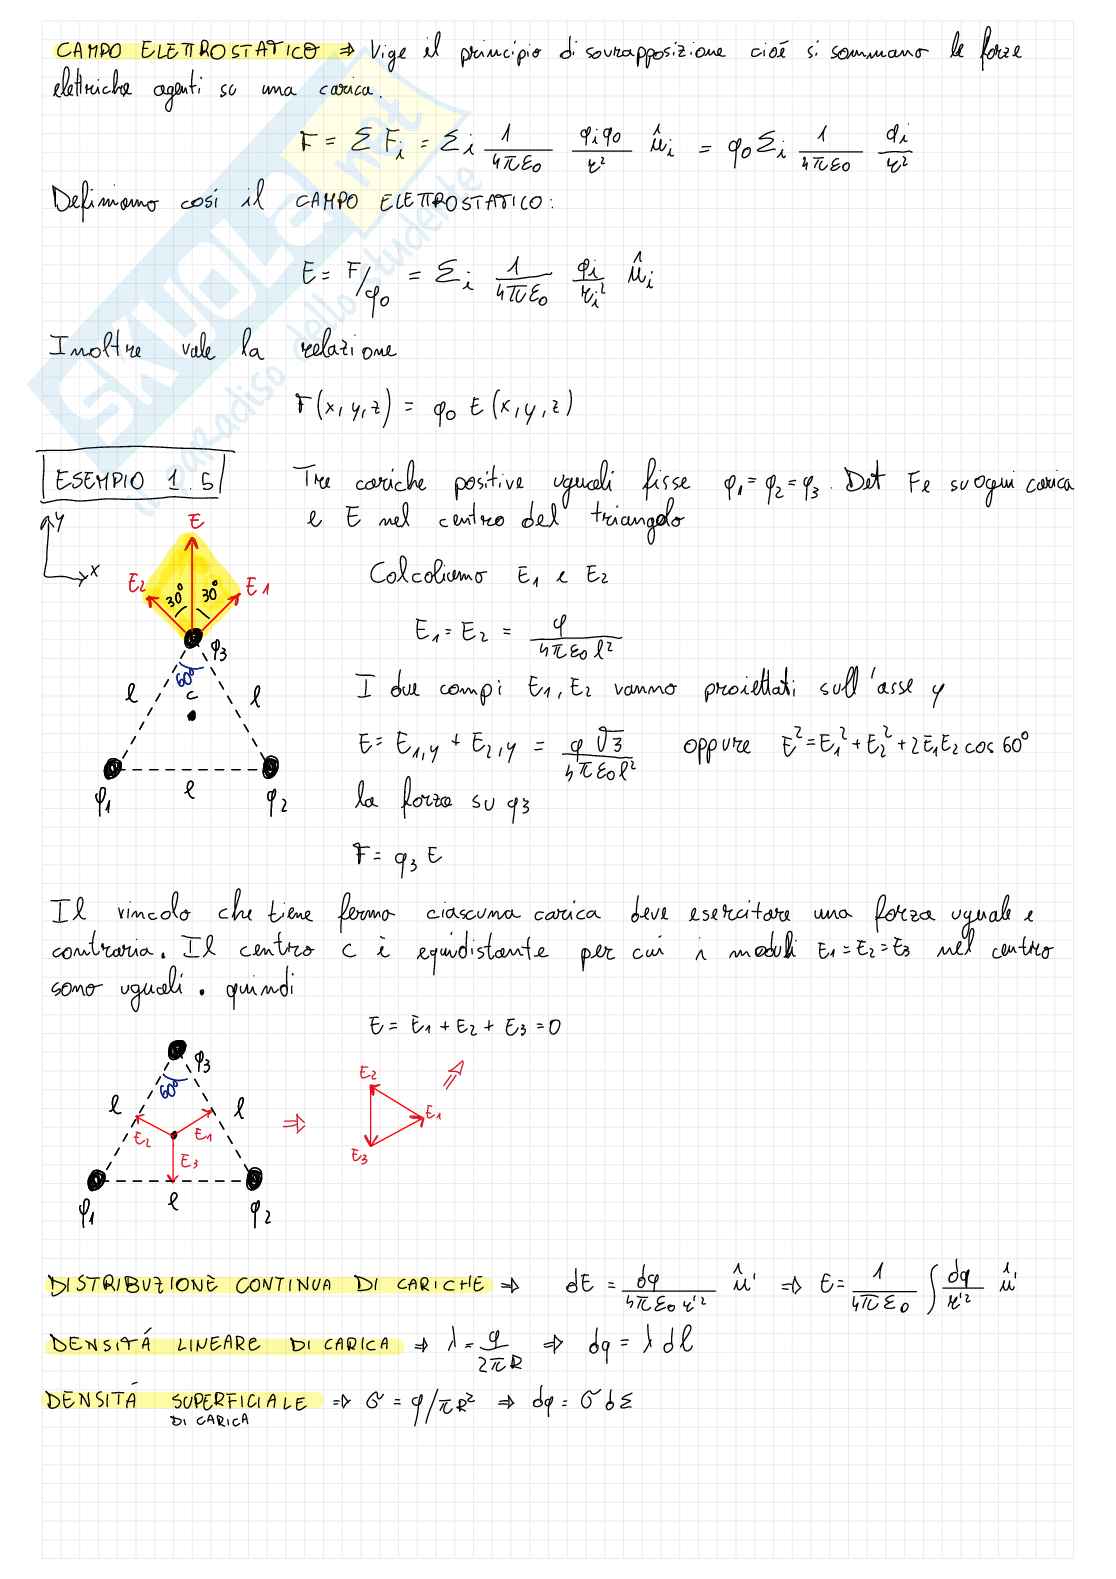 CAMPO ELETTROSTATICO ⇒ Vige il principio di sovrapposizione cioé si sommano le forze
elettriche agenti su una carica.
F = Σ Fi = Σi 1/4πε0 qiq0/r² ûi = q0 Σi 1/4πε0 qi/r²
Definiamo cosí il CAMPO ELETTROSTATICO:
E = F/q0 = Σi 1/4πε0 qi/ri² ûi
Inoltre vale la relazione
F(x,y,z) = q0 E(x,y,z)
ESEMPIO 1.5 Tre cariche positive uguali fisse q1=q2=q3. Det Fe su ogni carica
e E nel centro del triangolo
y
x
E
E2
30°
30°
E1
q3
60°
c
l
l
q1
l
q2
Calcoliamo E1 e E2
E1 = E2 = q/4πε0l²
I due campi E1,E2 vanno proiettati sull'asse y
E = E1,y + E2,y = q√3/4πε0l² oppure E²=E1²+E2²+2E1E2 cos 60°
la forza su q3
F = q3 E
Il vincolo che tiene fermo ciascuna carica deve esercitare una forza uguale e
contraria. Il centro c è equidistante per cui i moduli E1=E2=E3 nel centro
sono uguali. quindi
E = E1 + E2 + E3 = 0
q3
60°
l
l
E2
E1
E3
q1
l
q2
⇒
E2
E1
E3
DISTRIBUZIONE CONTINUA DI CARICHE ⇒ dE = dq/4πε0r'² û' ⇒ E = 1/4πε0 ∫ dq/r'² û'
DENSITÁ LINEARE DI CARICA ⇒ λ = q/2πR ⇒ dq = λ dl
DENSITÁ SUPERFICIALE ⇒ σ = q/πR² ⇒ dq = σ dΣ
DI CARICA
SKUOLA.net
il paradiso dello studente